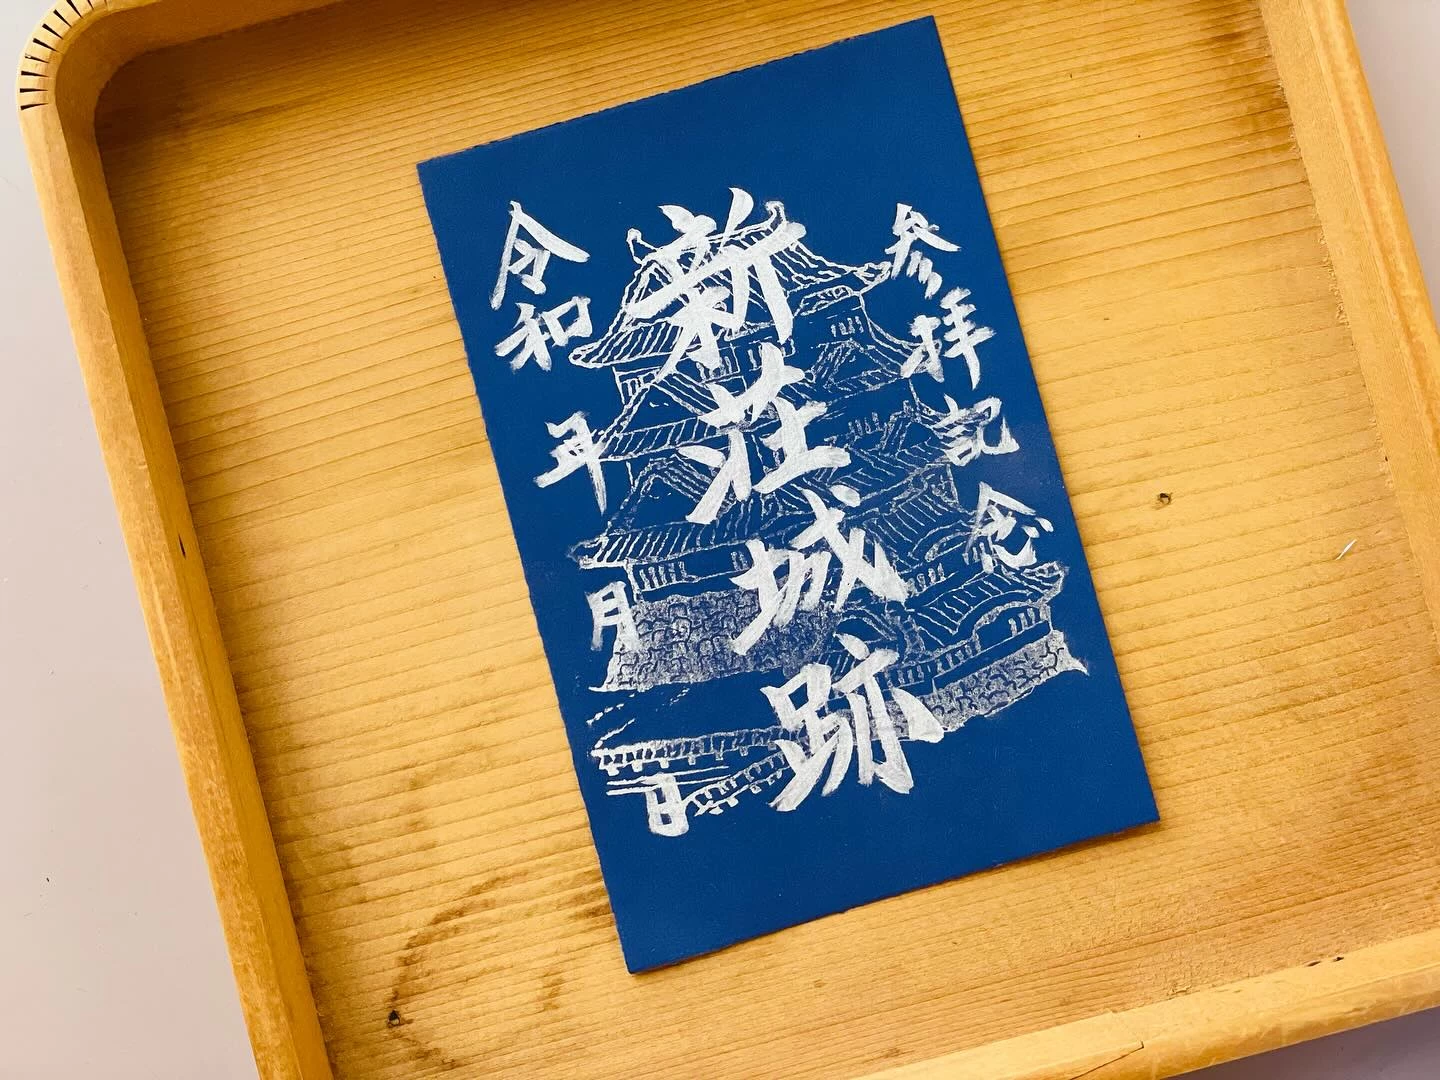 参拝記念
新荘城跡
令和 年 月 日